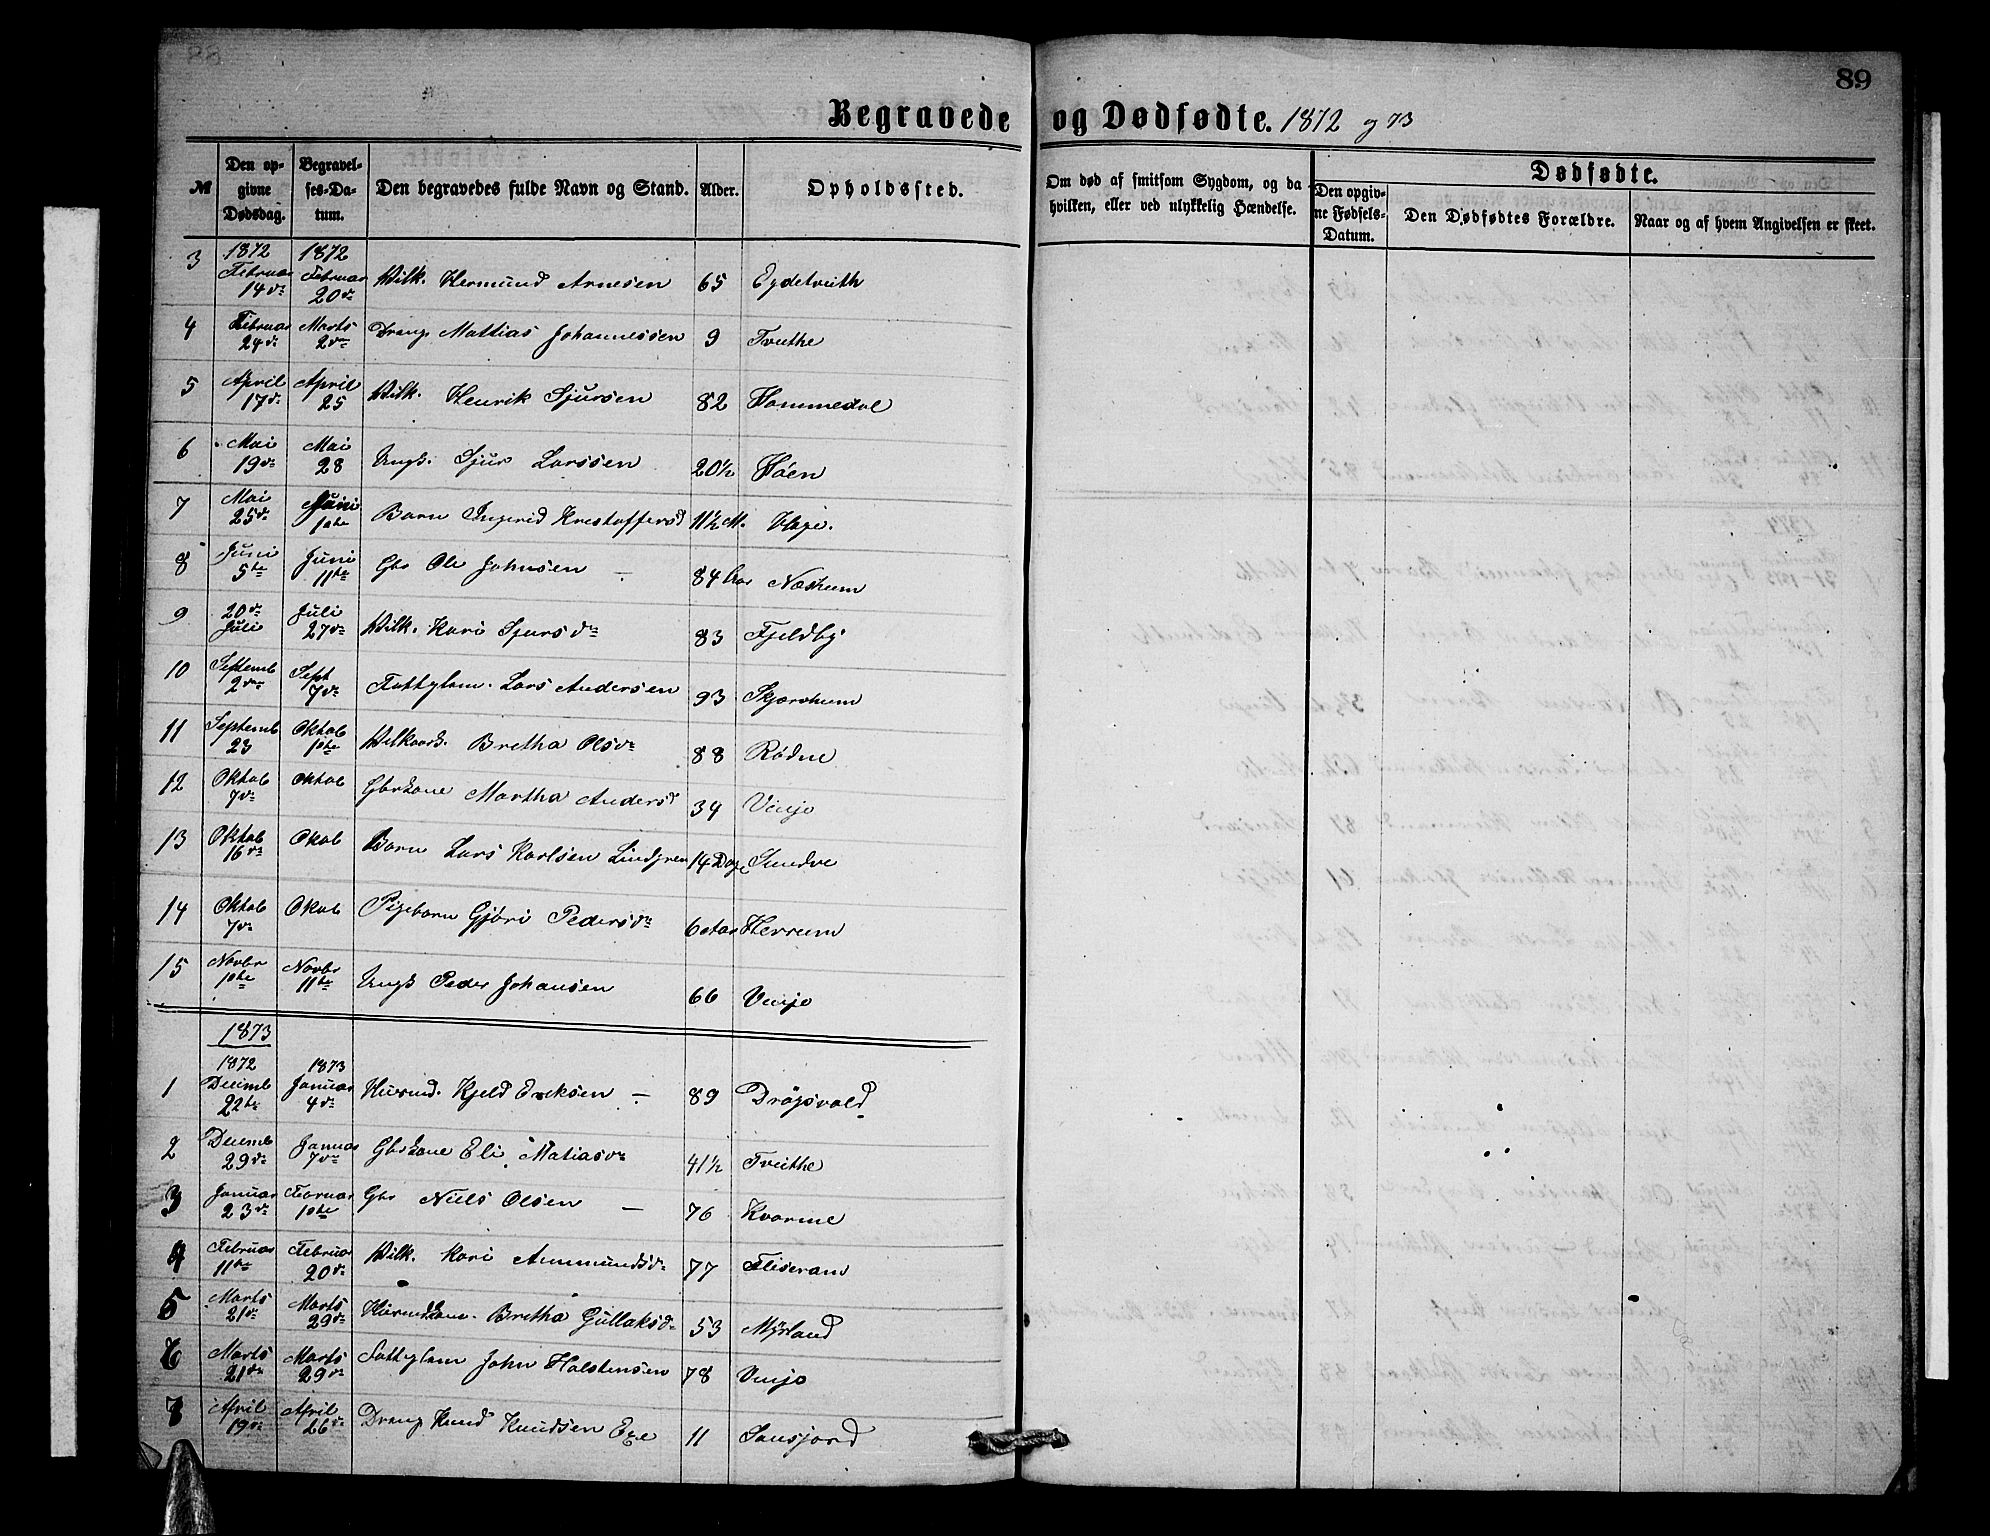 88
89
Begravede og Dødfødte. 1872 og 73
№ Den opgivne Dødsdag. Begravelses-Datum. Den begravedes fulde Navn og Stand. Alder. Opholdssted. Om død af smitsom Sygdom, og da hvilken, eller ved ulykkelig Hændelse. Dødfødte. Den opgivne Fødsels-Datum. Den Dødfødtes Forældre. Naar og af hvem Angivelsen er skeet.
1872 1872
3 Februar 14de Februar 20de Vilk. Hermund Arnesen 65 Eydetveith
4 Februar 24de Marts 2den Dreng Mattias Johannessen 9 Tveithe
5 April 17de April 25 Vilk. Henrik Sjursen 82 Hommedal
6 Mai 19de Mai 28 Ungk. Sjur Larssen 20½ Høen
7 Mai 25de Juni 1ste Barn Ingerid Kristoffersd 11½ M. Hage.
8 Juni 5te Juni 11te Gbr Ole Johnsen — 84 Aar Næsheim
9 20de Juli Juli 27de Vilk. Kari Sjursdr 83 Fjeldby
10 Septemb 2den Sept 7de Fattiglem. Lars Andersen 93 Skjærsheim
11 Septemb 23 Oktob 1ste Vilkaark. Bretha Olsdr 88 Rødne
12 Oktob 7de Oktob Gbrkone Martha Andersd 34 Vinje
13 Oktob 16de Okob Barn Lars Karlsen Lindgren 14 Dage Sundve
14 Oktob 7de Okob Pigebarn Gjøri Pedersdr 6 Aar Herreim
15 Novbr 1ste Novbr 11te Ungk Peder Johansen 66 Vinje
1873
1872 1873
1 Decemb 22de Januar 4de Husmd. Kjeld Eriksen — 89 Drøgsvold
2 Decemb 29de Januar 7de Gbrkone Eli Matiasdr 41½ Tveithe
3 Januar 23de Febr­uar 1ste Gbr Niels Olsen — 76 Kvarme
4 Februar 11te Februar 20de Vilk. Kari Ammundsdr 77 Fliseram
5 Marts 21de Marts 29de Husmdkone. Bretha Gullaksdr 53 Myrland
6 Marts 21de Marts 29de Fattiglem John Holstensen 78 Vinje
7 April 19de April 26de Dreng Knud Knudsen Eee 11 Sausjord